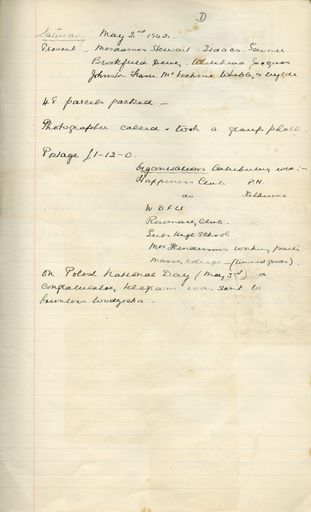 D
Saturday May 2nd 1942.
Present - Mesdames Stewart - Isaacs - Tanner
Brookfield Whitehead Jacques
Johnston Fraser McKechnie & Wylde
48 parcels packed -
Photographer called & took a group photo
Postage £1-12-0.
Organisations Contributing were:-
Happiness Club P.N.
do Kelburne
W.D.F.U
Rosemary Club.
Girls High School
Mrs Henderson's working party
college - (tinned goods).
On Polish National Day (May 3rd) a
congratulatory telegram was sent to
Countess Wodzicka.